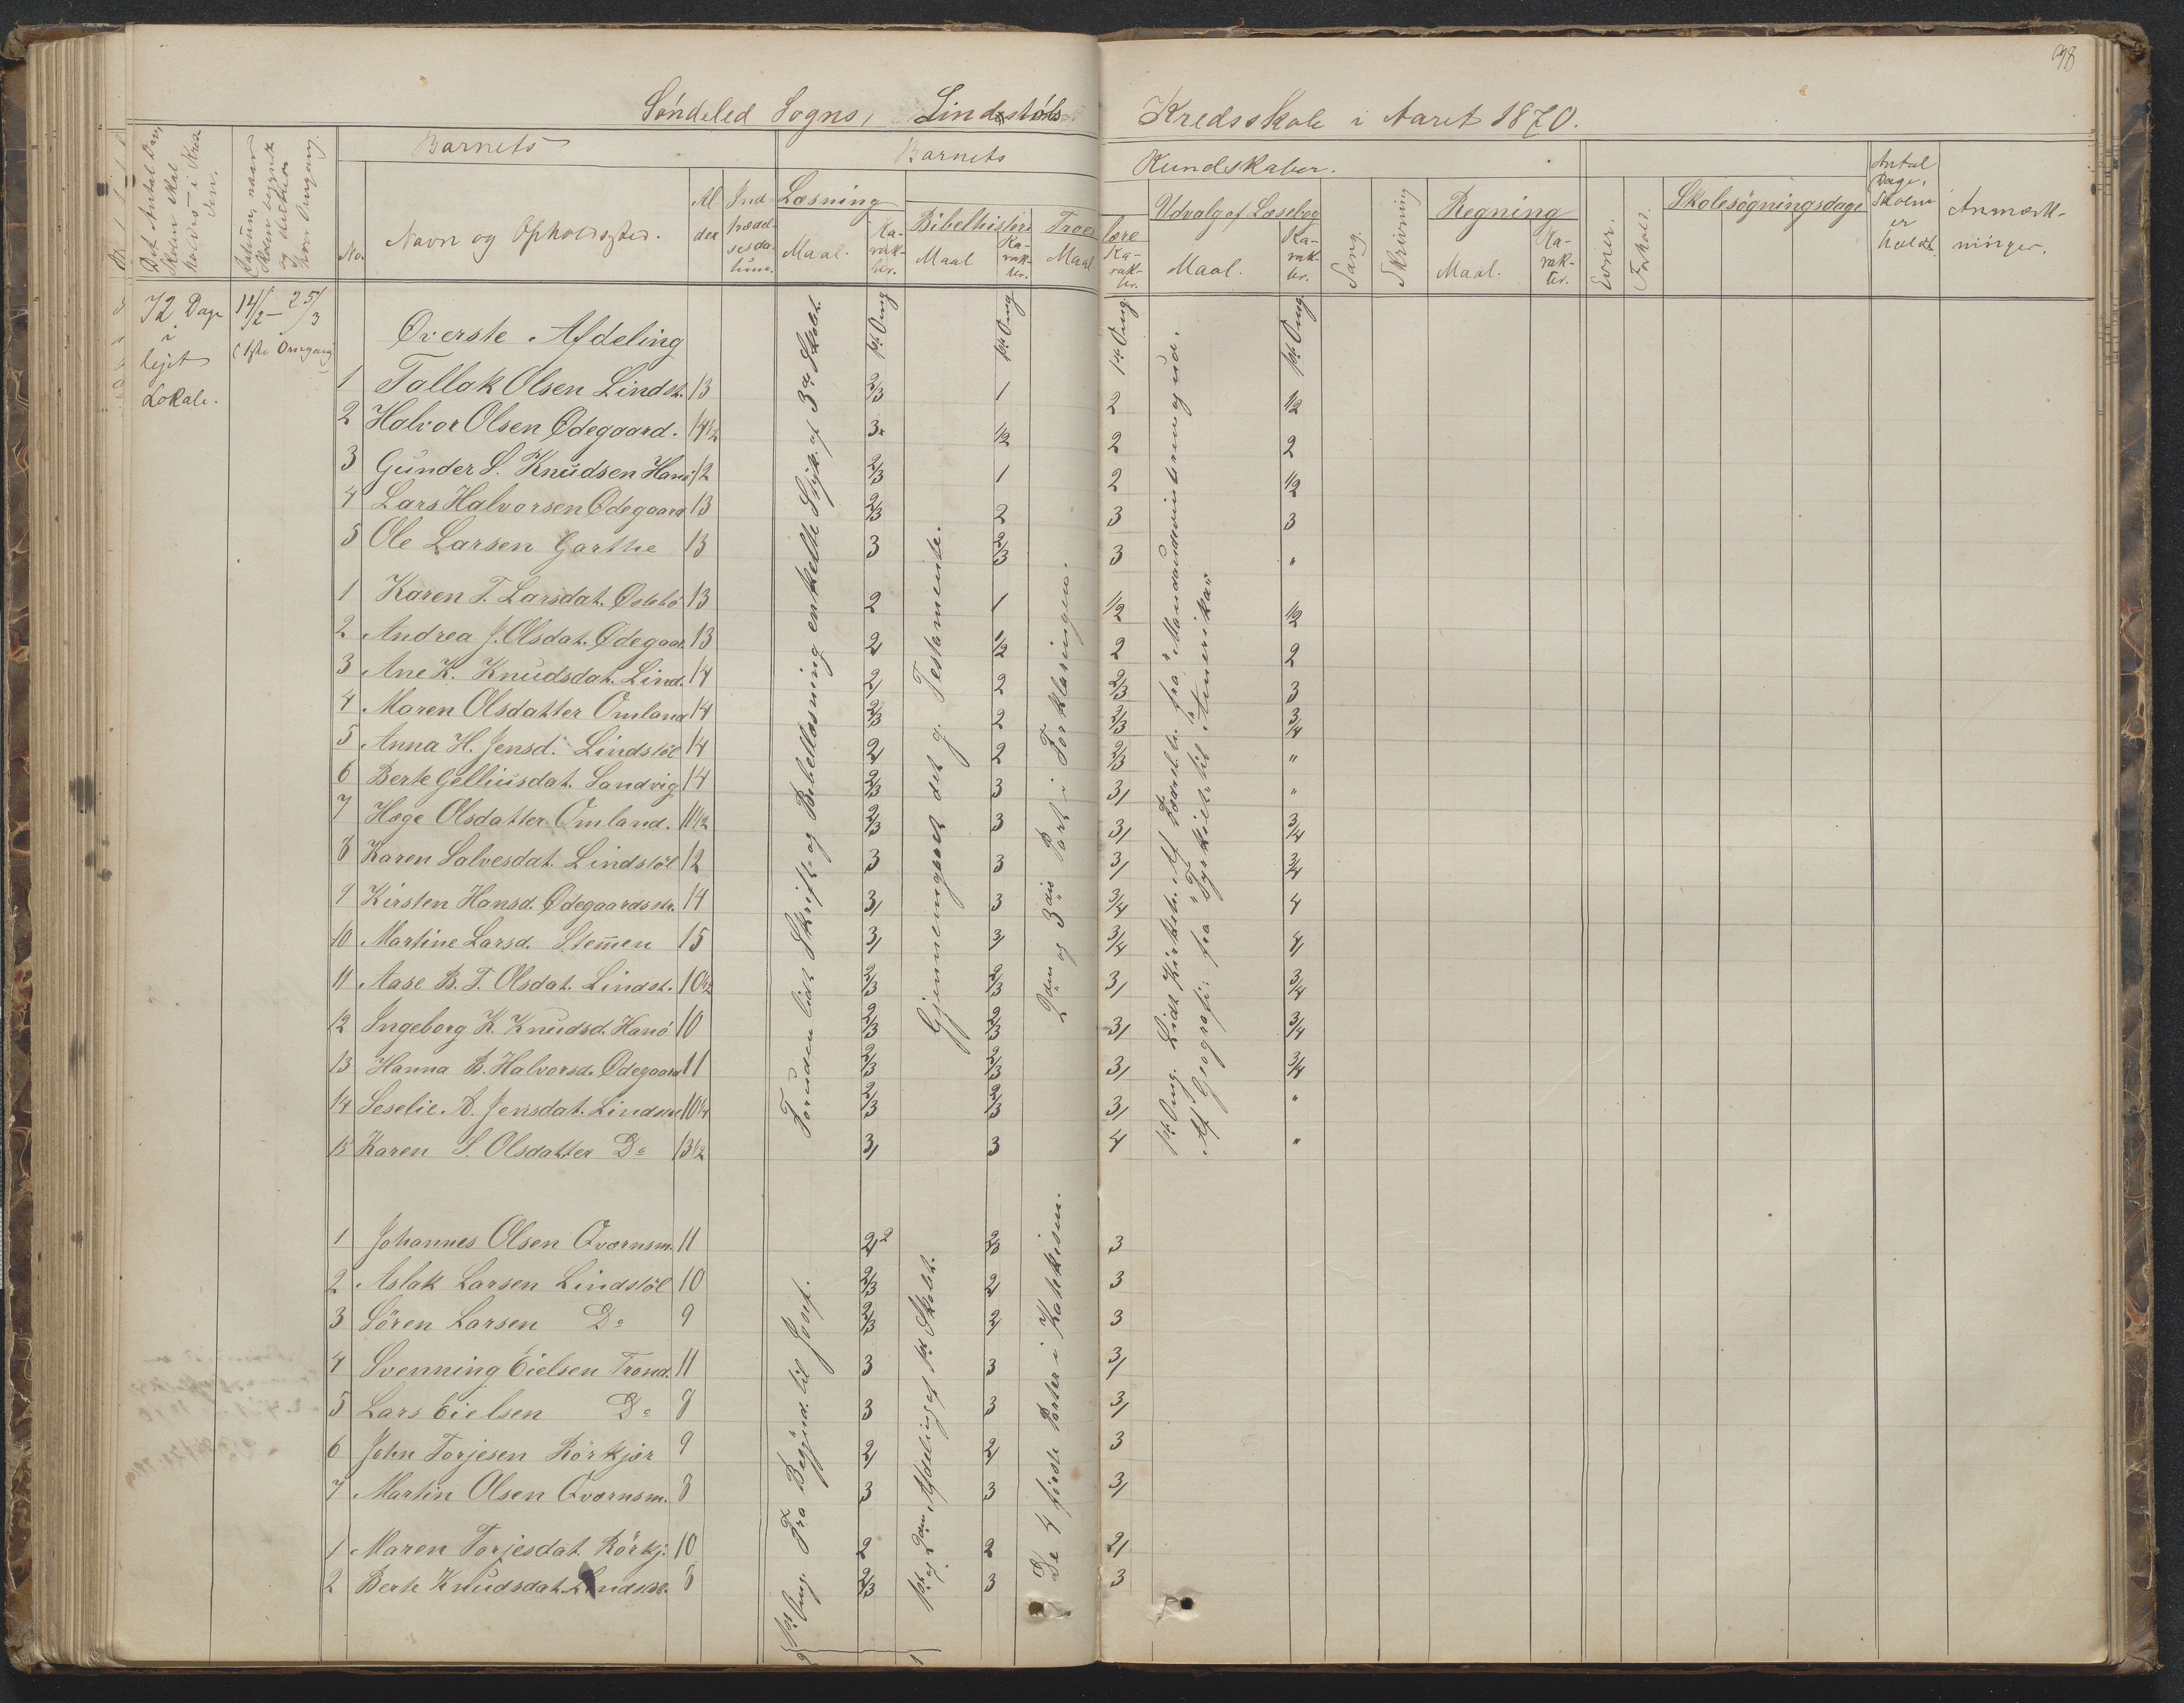 98
Söndeled Sogns, Lindstöls Kredsskole i Aaret 1870.
Det Antal Dage, Skolen skal holdes i Kredsen.
Datum, naar Skolen begynder og slutter hver Omgang.
Barnets
Barnets Kundskaber.
No.
Navn og Opholdssted.
Alder
Indtrædelsesdatum.
Læsning
Maal.
Karakter.
Bibelhistorie
Maal
Karakter.
Troeslære
Maal
Karakter.
Udvalg af Læsebog
Maal.
Karakter.
Sang.
Skrivning
Regning
Maal.
Karakter.
Evner.
Forhold.
Skolesögningsdage
Antal Dage, Skolen er holdt.
Anmærkninger.
72 Dage i lejet Lokale.
14/2 – 25/3
(1ste Omgang)
Överste Afdeling
1ste Omg 1ste Omg 1ste Omg 1ste Omg
1 Tallak Olsen Lindst. 13 2/3 1 2 1/2
2 Halvor Olsen Ødegaard. 14 1/2 3 1/2 2 2
3 Gunder S. Knudsen Hanö 12 2/3 1 2 1/2
4 Lars Halvorsen Ødegaard 13 2/3 2 3 3
5 Ole Larsen Garthe 13 3 2/3 3 "
1 Karen T. Larsdat. Östebö 13 2 1 1/2 1/2
2 Andrea J. Olsdat. Ødegaar. 13 2/ 1/2 2 2
3 Ane K. Knudsdat. Lind. 14 2/ 2 2/3 3
4 Maren Olsdatter Omland 14 2/3 2 2/3 3/4
5 Anna H. Jensd. Lindstöl 14 2/ 2 2/3 "
6 Berte Gelliusdat. Sandvig 14 2/3 3 3/ "
7 Hæge Olsdatter Omland. 11 1/2 2/3 3 3/ 3/4
8 Karen Salvesdat. Lindstöl 12 3 3 3/ 3/4
9 Kirsten Hansd. Ødegaardsstr. 14 3/ 3 3/4 4
10 Martine Larsd. Stemmen 15 3/ 3/ 3/4 4
11 Aase B. T. Olsdat. Lindst. 10 1/2 2/3 2/3 3/ 3/4
12 Ingeborg K. Knudsd. Hanö 10 2/3 2/3 3/ 3/4
13 Hanna B. Halvorsd. Ødegaard 11 2/3 2/3 3/ 3/4
14 Seselie A. Jensdat. Lindstöl 10 1/4 2/3 2/3 3/ "
15 Karen S. Olsdatter Do 13 1/2 3/ 3 4 "
Foruden lidt Skrift- og Bibellæsning enkelte Stÿk. af 3de Skolet.
Gjennemgaaet det g. Testamente.
2den og 3die Part i Forklaringen.
1ste Omg. Lidt Kirkeh. Af Fædrel.h. fra "Mandaudvinterne og ud.
Af Geografi: fra "Tyrkiet" til "Amerika"
1 Johannes Olsen Qværnsm. 11 2/ 2 2/3 3
2 Aslak Larsen Lindstöl 10 2/3 2/ 3
3 Sören Larsen Do 9 2/3 2/ 3
4 Svenning Eielsen Trond. 11 3 3 3/
5 Lars Eielsen Do 8 3 3 3/
6 John Torjesen Rörkjær 9 2/ 2/ 3
7 Martin Olsen Qværnsm. 8 3 3 3/
1 Maren Torjesdat. Rörkj. 10 2 2 2/
2 Berte Knudsdat. Lindstöl. 8 2/3 3 3
1ste Omg. Fra Begynd. til Josef.
1ste og 2den Afdeling af 1ste Skolet.
De 4 förste Parter i Katekism.